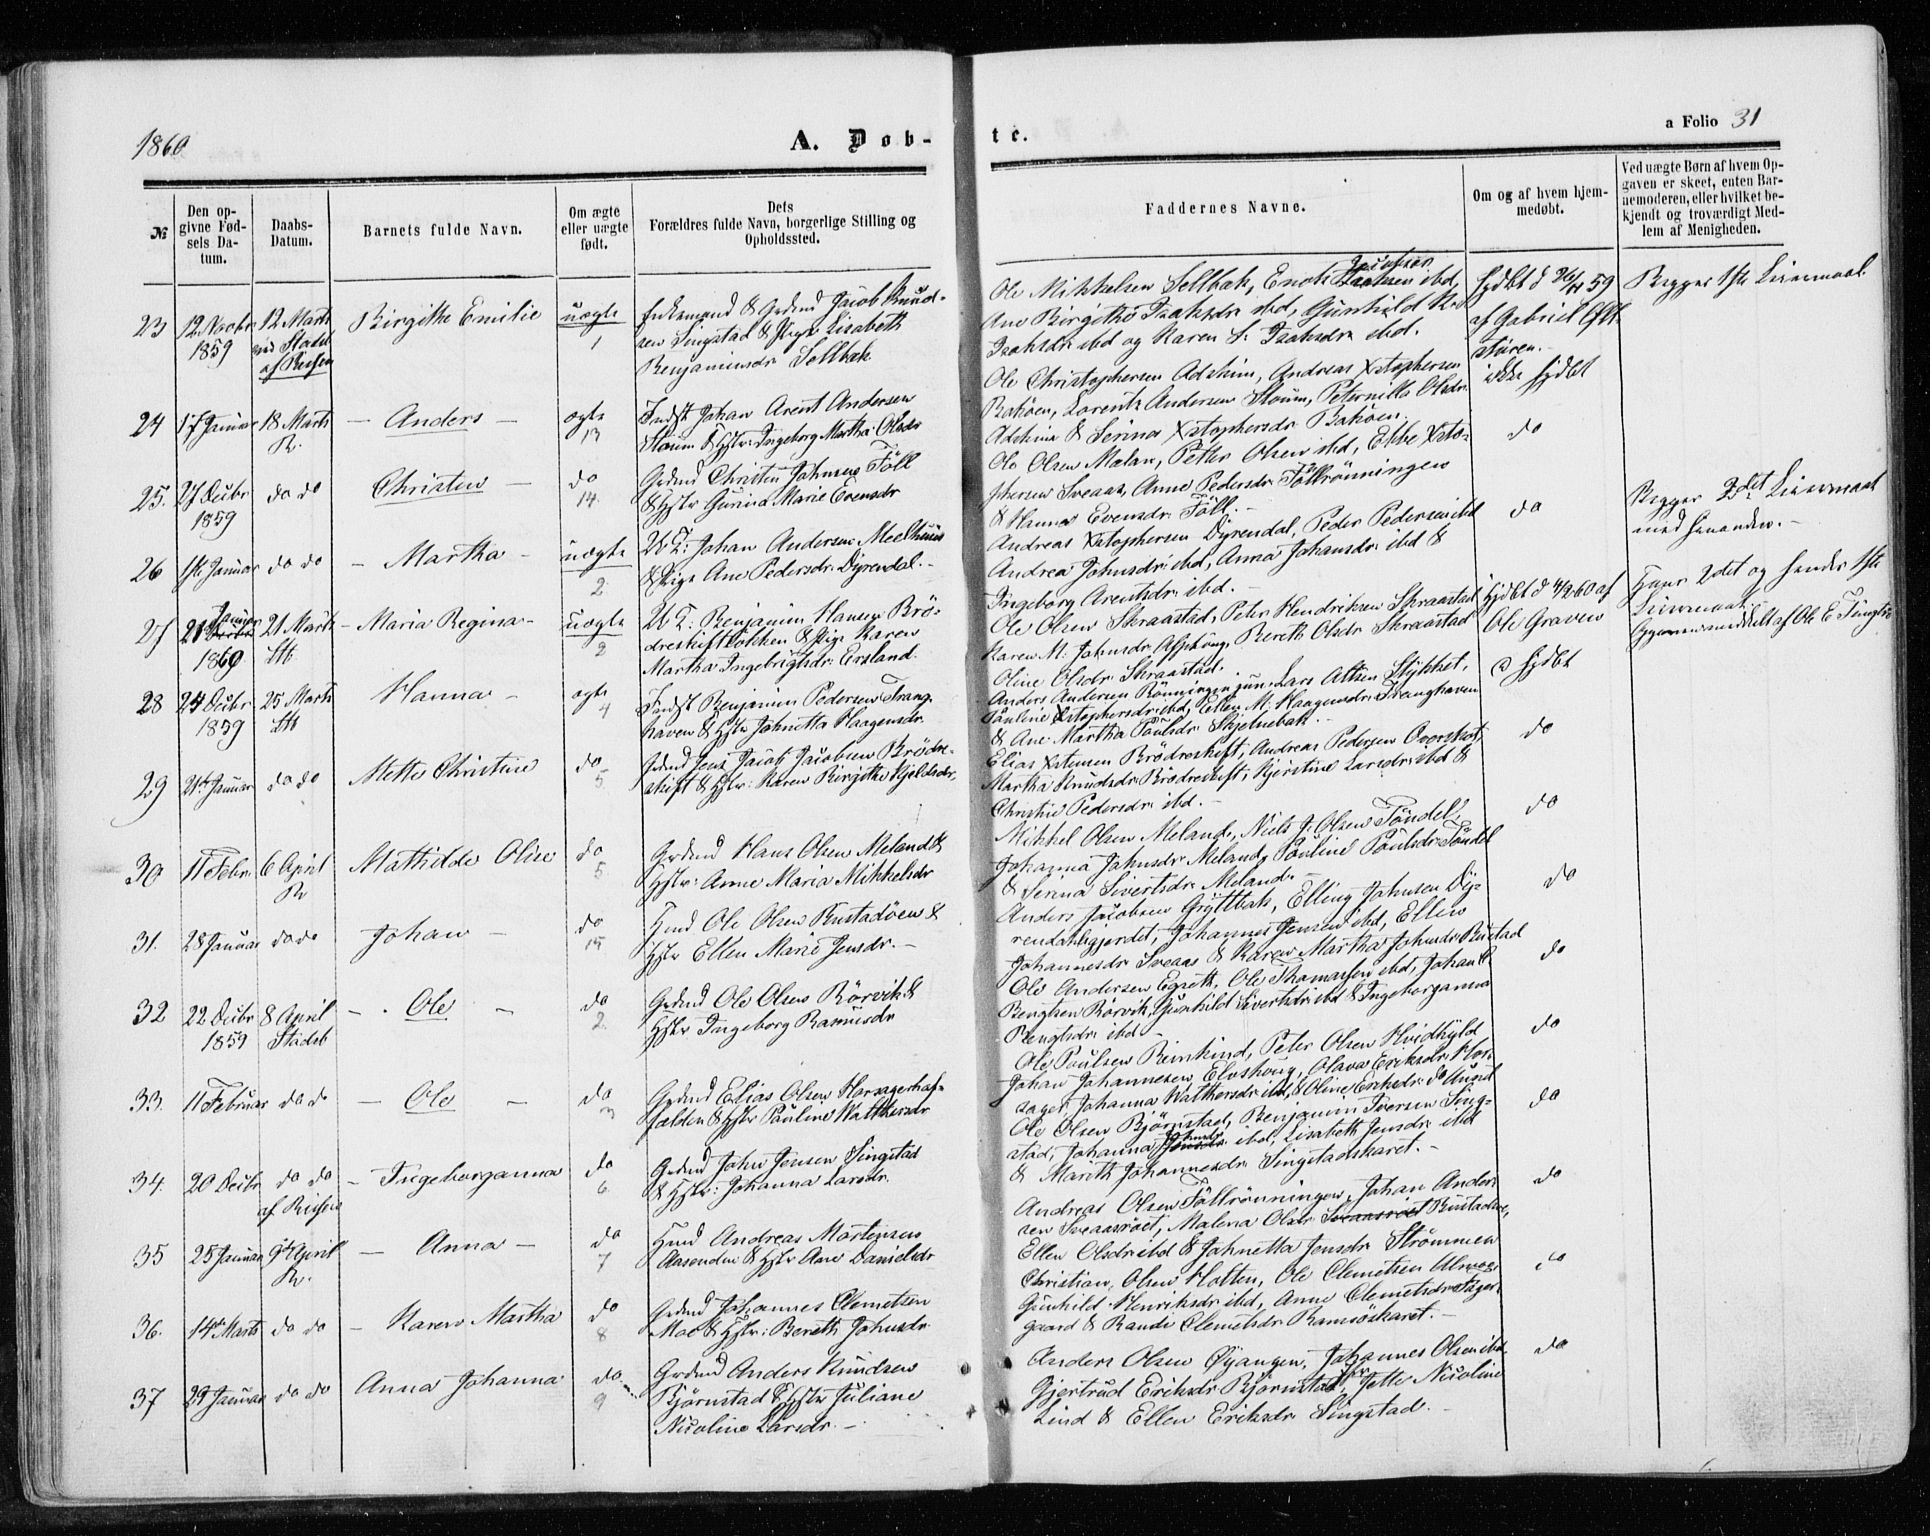 1860
A. Døb-
te.
a Folio 31
№
Den opgivne Fødsels Datum.
Daabs-Datum.
Barnets fulde Navn.
Om ægte eller uægte født.
Dets Forældres fulde Navn, borgerlige Stilling og Opholdssted.
Faddernes Navne.
Om og af hvem hjemmedøbt.
Ved uægte Børn af hvem Opgaven er skeet, enten Barnemoderen, eller hvilket bekjendt og troværdigt Medlem af Menigheden.
23 12 Novbr 1859 12 Marts Birgithe Emilie uægte 1
Enkemand & Grdmd Jacob Knud-
sen Singstad & Pige Lisabeth
Benjaminsdr Selbak
Ole Mikkelsen Selbak, Enok Jacobsen ibd,
Ane Birgitha Isaksdr ibd, Gunhild
Isaksdr ibd og Karen Isaksdr ibd.
af Gabriel
Begges 1ste Leiermaal
24 17 Januar 18 Marts R. - Anders - ægte 13
Indst Johan Arent Andersen
Moum & Hstr Ingeborg Martha Olsdr
Ole Christophersen Adshim, Andreas Xstophersen
Bakøen, Lorents Andersen Moum, Peternilla Olsdr
Adshim & Serina Xstophersdr Bakøen.
ikke hjdbt
25. 27 Decbr 1859 do do Christen - do 14.
Grdmd Christen Johnsen Föll
& Hstr Gurina Marie Evensdr
Ole Olsen Mælan, Peter Olsen ibd, Ebbe Xsto-
phersen Sveaas, Anne Pedersdr Föllrönningen
& Hanna Evensdr Föll. -
do
26 1ste Januar do do - Martha - uægte 2
U.K. Johan Andersen Meelhuus
& Pige Ane Pedersdr Dyrendal. -
Andreas Xstophersen Dyrendal, Peder Pedersen ibd
Andrea Johnsdr ibd, Anna Johansdr ibd &
Ingeborg Arentsdr ibd. -
do
Begges 2det Leiermaal
med hinanden. -
27 21 Januar 1860 21 Marts - Maria Regina - uægte 2
U.K. Benjamin Hansen Brö-
dreskift & Pige Karen
Martha Ingebrigtsdr Ersland.
Ole Olsen Skraastad, Peter Hendriksen Skraastad
Karen M. Johnsdr, Bereth Olsdr Skraastad
Oline Olsdr Skraastad.
hjdbt d 4/2 60 af
Ole Graven
Hans 2det og hendes 1ste
Leiermaal.
28 25 Decbr 1859 25 Marts Hanna - ægte 4
Indst Benjamin Pedersen Trang-
haven & Hstr Johnetta Haagensdr
Anders Andersen Rönningen jun., Lars Altsen Stykket,
Pauline Xstophersdr ibd, Ellen M. Haagensdr Tranghaven
& Ane Martha Paulsdr Skjetnebak. -
hjdbt
29 21de Januar do do Mette Christine do 5
Grdmd Jens Jacob Jacobsen Brödre-
skift & Hstr: Karen Birgithe Kjeldsdr
Elias Xstensen Brödreskift, Andreas Pedersen Overskot
Martha Knudsdr Brödreskift, Kjerstine Larsdr ibd &
Christine Pedersdr ibd. -
do
30 11 Febr. 6 April R Mathilde Oline do 5
Grdmd Hans Olsen Meland &
Hstr: Anne Maria Mikkelsdr
Mikkel Olsen Meland, Niels J. Olsen Töndel,
Johanna Johnsdr Meland, Pauline Paulsdr Töndel
& Serina Sivertsdr Meland. -
do
31. 28 Januar do do Johan - do 15
Hmd Ole Olsen Rustadöen &
Hstr Ellen Marie Jensdr. -
Anders Jacobsen Gryttbak, Elling Johnsen Dy-
rendahlsgjerdet, Johannes Jensen ibd, Ellen
Johannesdr Sveaas & Karen Martha Johnsdr Rustad
do
32 22 Decbr 1859 8 April Stadsb - Ole - do 2.
Grdmd Ole Olsen Rörvik &
Hstr Ingeborg Rasmusdr
Ole Andersen Egseth, Ole Thomassen ibd, Johan
Bengtsen Rörvik, Gunhild Sivertsdr ibd & Ingeborganna
Bengtsdr ibd -
do
33. 11 Februar do do - Ole - do 3
Grdmd Elias Olsen
& Hstr Pauline Walthersdr
Ole Paulsen Reinkind, Peter Olsen Hvidkyld
Johan Johannesen Elvshoug, Olava Eriksdr
Johanna Walthersdr ibd, & Oline Eriksdr
do
34. 20 Decbr do do - Ingeborganna do 6
Grdmd John Jensen Singstad
& Hstr: Johanna Larsdr.
Ole Olsen Bjørnstad, Benjamin Iversen Sing-
stad, Johanna Johnsdr ibd, Lisabeth Jensdr ibd
& Marith Johannesdr Singstadskaret. -
do
35 25 Januar 9de April R. - Anna - do 7
Hmd Andreas Mortensen
Aasenden & Hstr Ane Danielsdr
Andreas Olsen Föllrönningen, Johan Ander-
sen Sveaasröet, Malena Olsdr Rustadöe,
Ellen Olsdr ibd & Johnetta Jensdr Strömmen
do
36. 14de Marts do do - Karen Martha do 8
Grdmd Johannes Clemetsen
Moe & Hstr: Bereth Johnsdr
Christian Olsen Holten, Ole Clemetsen
Gunhild Henriksdr ibd, Anne Clemetsdr
gaard & Randi Clemetsdr Ramsöskaret. -
do
37 29 Januar do do Anna Johanna do 9
Grdmd Anders Knudsen
Bjørnstad & Hstr Juliane
Nicoline Larsdr. -
Anders Olsen Øyangen, Johannes Olsen ibd
Gjertrud Eriksdr Bjørnstad, Jette Nicoline
Lind & Ellen Eriksdr Singstad. -
do